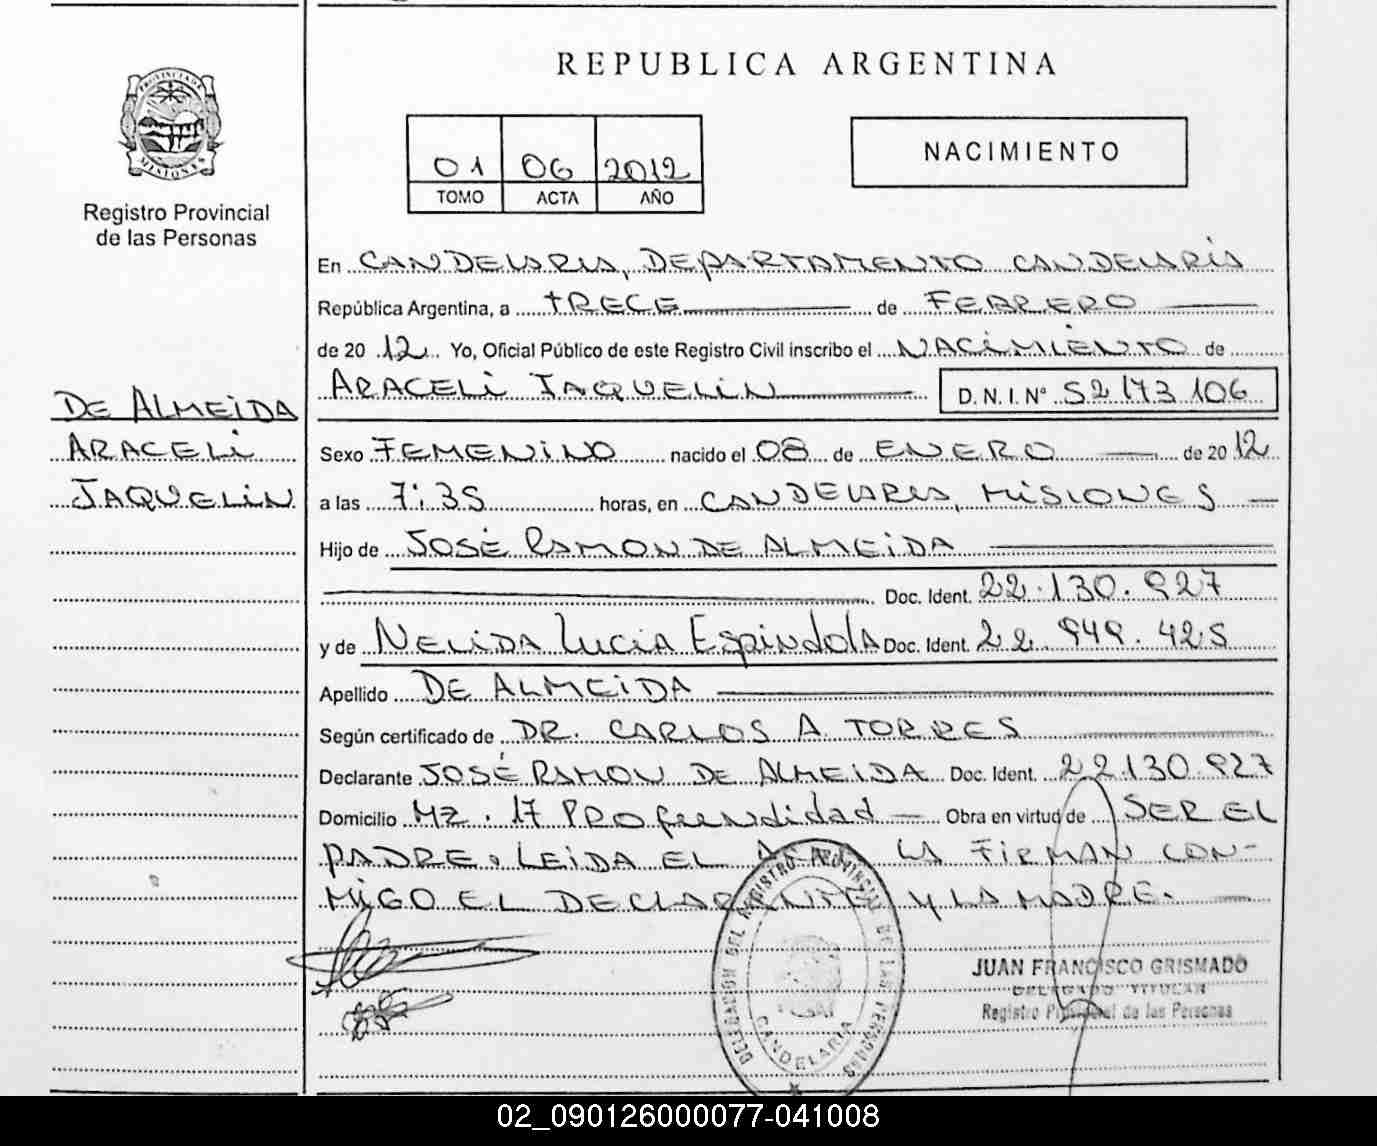 REPUBLICA ARGENTINA
PROVINCIA DE
MISIONES
Registro Provincial
de las Personas
01 06 2012
TOMO ACTA AÑO
NACIMIENTO
En CANDELARIA, DEPARTAMENTO CANDELARIA
República Argentina, a TRECE de FEBRERO
de 20 12 Yo, Oficial Público de este Registro Civil inscribo el NACIMIENTO de
ARACELI JAQUELIN D. N. I. Nº 52 173 106
DE ALMEIDA
ARACELI
JAQUELIN
Sexo FEMENINO nacido el 08 de ENERO de 20 12
a las 7:35 horas, en CANDELARIA, MISIONES
Hijo de JOSÉ RAMON DE ALMEIDA
Doc. Ident. 22.130.927
y de NELIDA LUCIA Espindola Doc. Ident. 22.949.425
Apellido DE ALMEIDA
Según certificado de DR. CARLOS A. TORRES
Declarante JOSÉ RAMON DE ALMEIDA Doc. Ident. 22.130.927
Domicilio MZ. 17 PROfundidad Obra en virtud de SER EL
PADRE. LEIDA EL ACTA LA FIRMAN CON-
MIGO EL DECLARANTE Y LA MADRE.
DELEGACION DEL REGISTRO PROVINCIAL DE LAS PERSONAS
CANDELARIA
JUAN FRANCISCO GRISMADO
DELEGADO TITULAR
Registro Provincial de las Personas
02_090126000077-041008